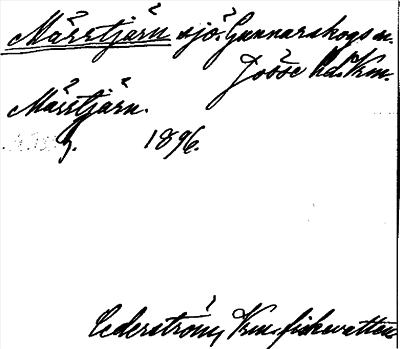 Märrtjärn sjö. Gunnarskogs sn.
Jösse hd. Vrm.
Märrtjärn.
1896.
Cederström, Vrm. fiskevatten